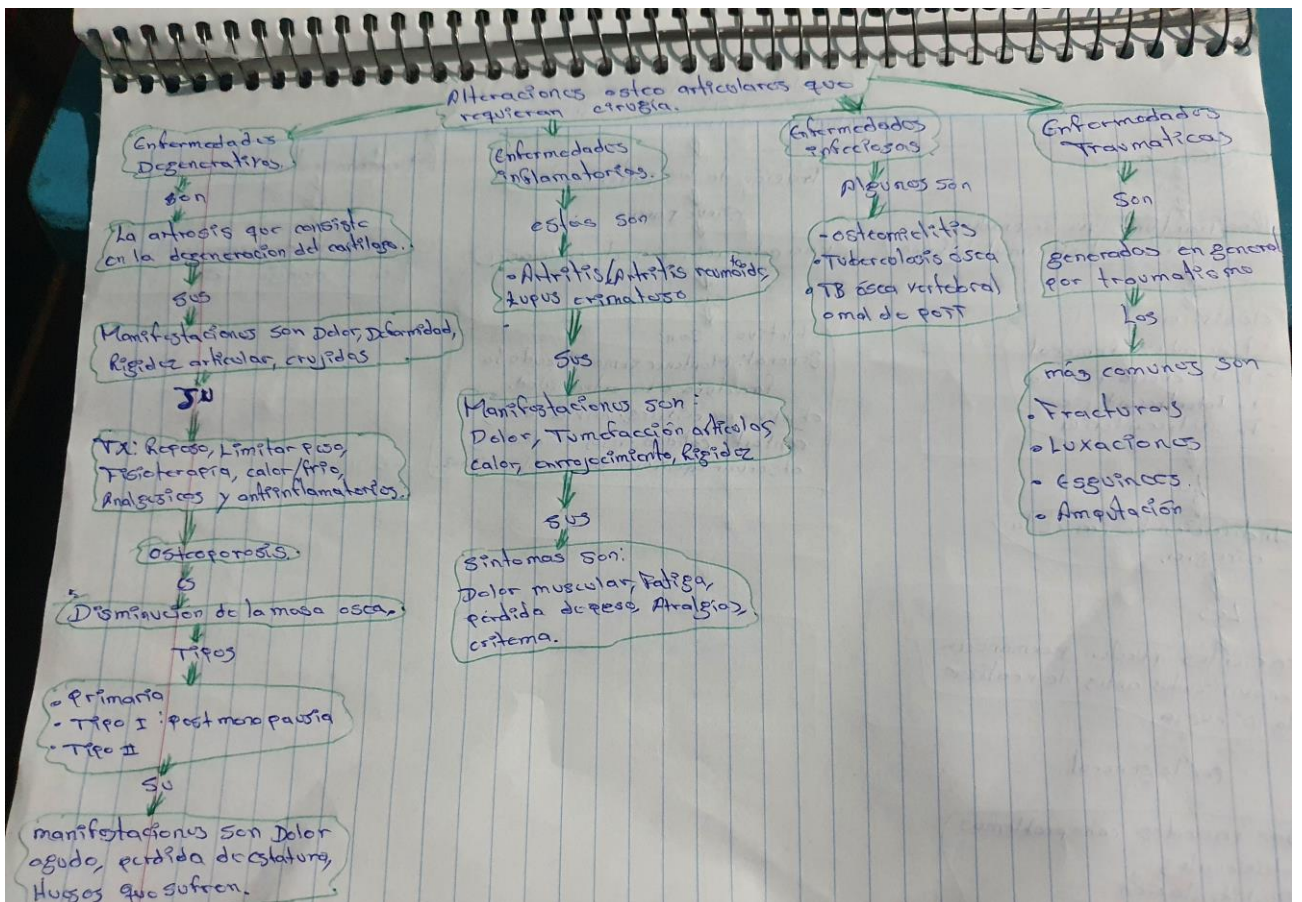 Alteraciones osteo articulares que
requieran cirugía.
Enfermedades
Degenerativas.
son
La artrosis que consiste
en la degeneracion del cartilago.
sus
Manifestaciones son Dolor, Deformidad,
Rigidez articular, crujidos
SU
TX: Reposo, Limitar peso,
Fisioterapia, calor/frio,
Analgesicos y antiinflamatorios.
Osteoporosis.
es
Disminucion de la masa osea.
Tipos
• Primaria
• Tipo I : post menopausia
• Tipo II
SU
manifestaciones son Dolor
agudo, perdida de estatura,
Huesos que sufren.
Enfermedades
inflamatorias.
estás son
• Artritis/Artritis reumoide,
Lupus
sus
Manifestaciones son:
Dolor, Tumefacción articulas
calor, enrrojecimiento, Rigidez
sus
sintomas son:
Dolor muscular, Fatiga,
perdida de peso, Atralgias,
eritema.
Enfermedades
infeciosas.
Algunos son
- osteomielitis
• Tuberculosis ósea
• TB ósea vertebral
o mal de pott
Enfermedades
Traumaticas
Son
generados en general
por traumatismo
Los
más comunes son
• Fracturas
• Luxaciones
• Esguinces.
• Amputación